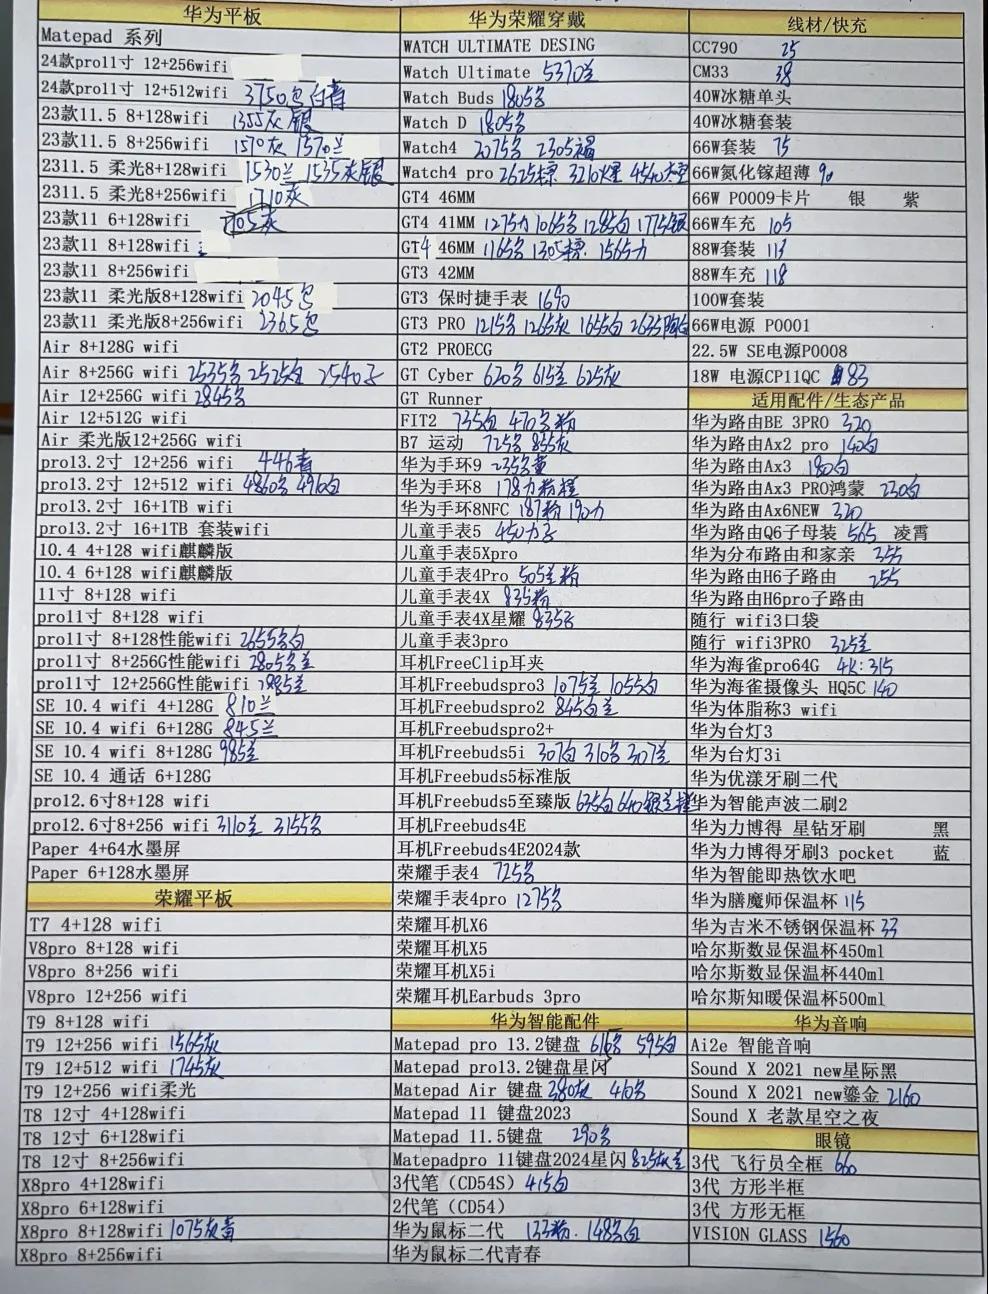 华为平板
Matepad 系列
24款pro11寸 12+256wifi
24款pro11寸 12+512wifi 3750 白青
23款11.5 8+128wifi 1355灰 银
23款11.5 8+256wifi 1570灰 1570兰
2311.5 柔光8+128wifi 1530兰 1535灰银
2311.5 柔光8+256wifi 1710灰
23款11 6+128wifi 灰
23款11 8+128wifi
23款11 8+256wifi
23款11 柔光版8+128wifi 2045
23款11 柔光版8+256wifi 2365
Air 8+128G wifi
Air 8+256G wifi 2535 2525白 2540
Air 12+256G wifi 2845
Air 12+512G wifi
Air 柔光版12+256G wifi
pro13.2寸 12+256 wifi 446青
pro13.2寸 12+512 wifi 4860 4910白
pro13.2寸 16+1TB wifi
pro13.2寸 16+1TB 套装wifi
10.4 4+128 wifi麒麟版
10.4 6+128 wifi麒麟版
11寸 8+128 wifi
pro11寸 8+128 wifi
pro11寸 8+128性能wifi 2655 白
pro11寸 8+256G性能wifi 2805 兰
pro11寸 12+256G性能wifi 兰
SE 10.4 wifi 4+128G 810兰
SE 10.4 wifi 6+128G 845兰
SE 10.4 wifi 8+128G 985兰
SE 10.4 通话 6+128G
pro12.6寸8+128 wifi
pro12.6寸8+256 wifi 3110兰 3155
Paper 4+64水墨屏
Paper 6+128水墨屏
荣耀平板
T7 4+128 wifi
V8pro 8+128 wifi
V8pro 8+256 wifi
V8pro 12+256 wifi
T9 8+128 wifi
T9 12+256 wifi 1565灰
T9 12+512 wifi 1745灰
T9 12+256 wifi柔光
T8 12寸 4+128wifi
T8 12寸 6+128wifi
T8 12寸 8+256wifi
X8pro 4+128wifi
X8pro 6+128wifi
X8pro 8+128wifi 1075灰青
X8pro 8+256wifi
华为荣耀穿戴
WATCH ULTIMATE DESING
Watch Ultimate 5370兰
Watch Buds 1805
Watch D 1805
Watch4 2075 2305
Watch4 pro 2625 3210 4540
GT4 46MM
GT4 41MM 1275 1065 1285白 1775银
GT4 46MM 1165 1305 1565
GT3 42MM
GT3 保时捷手表 1690
GT3 PRO 1215 1265灰 1655白 2635
GT2 PROECG
GT Cyber 620 615兰 625灰
GT Runner
FIT2 735白 470 粉
B7 运动 725 855灰
华为手环9 235 黄
华为手环8 178 粉橙
华为手环8NFC 187粉 190
儿童手表5 450
儿童手表5Xpro
儿童手表4Pro 505兰粉
儿童手表4X 835粉
儿童手表4X星耀 835
儿童手表3pro
耳机FreeClip耳夹
耳机Freebudspro3 1075兰 1055白
耳机Freebudspro2 845白兰
耳机Freebudspro2+
耳机Freebuds5i 307白 310 307兰
耳机Freebuds5标准版
耳机Freebuds5至臻版 635白 640银兰
耳机Freebuds4E
耳机Freebuds4E2024款
荣耀手表4 725
荣耀手表4pro 1275
荣耀耳机X6
荣耀耳机X5
荣耀耳机X5i
荣耀耳机Earbuds 3pro
华为智能配件
Matepad pro 13.2键盘 595白
Matepad pro13.2键盘星闪
Matepad Air 键盘 380灰 410
Matepad 11 键盘2023
Matepad 11.5键盘 290
Matepadpro 11键盘2024星闪 825灰兰
3代笔（CD54S）415白
2代笔（CD54）
华为鼠标二代 133粉. 148 白
华为鼠标二代青春
线材/快充
CC790 25
CM33 38
40W冰糖单头
40W冰糖套装
66W套装 75
66W氮化镓超薄 90
66W P0009卡片 银 紫
66W车充 105
88W套装 113
88W车充 118
100W套装
66W电源 P0001
22.5W SE电源P0008
18W 电源CP11QC 83
适用配件/生态产品
华为路由BE 3PRO 320
华为路由Ax2 pro 140白
华为路由Ax3 180白
华为路由Ax3 PRO鸿蒙 230白
华为路由Ax6NEW 320
华为路由Q6子母装 565 凌霄
华为分布路由和家亲 355
华为路由H6子路由 255
华为路由H6pro子路由
随行 wifi3口袋
随行 wifi3PRO 325兰
华为海雀pro64G 4K:315
华为海雀摄像头 HQ5C 140
华为体脂称3 wifi
华为台灯3
华为台灯3i
华为优漾牙刷二代
华为智能声波二刷2
华为力博得 星钻牙刷 黑
华为力博得牙刷3 pocket 蓝
华为智能即热饮水吧
华为膳魔师保温杯 115
华为吉米不锈钢保温杯 33
哈尔斯数显保温杯450ml
哈尔斯数显保温杯440ml
哈尔斯知暖保温杯500ml
华为音响
Ai2e 智能音响
Sound X 2021 new星际黑
Sound X 2021 new鎏金 2160
Sound X 老款星空之夜
眼镜
3代 飞行员全框 660
3代 方形半框
3代 方形无框
VISION GLASS 1560